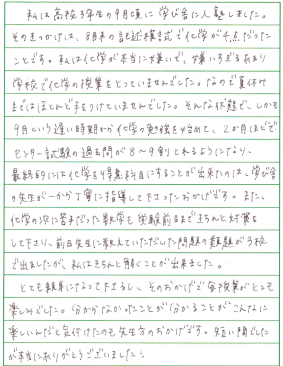 私は高校3年生の9月頃に学び舎に入塾しました。
そのきっかけは、8月末の記述模試で化学が0点だった
ことです。私は化学が本当に嫌いで、嫌いすぎるあまり
学校で化学の授業をとっていませんでした。なので夏休み
まではほとんど手をつけていませんでした。そんな状態で、しかも
9月という遅い時期から化学の勉強を始めて、2か月ほどで
センター試験の過去問が8～9割とれるようになり、
最終的には化学を得意科目にすることが出来たのは、学び舎
の先生が一から丁寧に指導して下さったおかげです。また、
化学の次に苦手だった数学も受験前日まできちんと対策を
して下さり、前日先生に教えていただいた問題の類題が3校
で出ましたが、私はきちんと解くことが出来ました。
とても親身になって下さるし、そのおかげで毎授業がとても
楽しみでした。分からなかったことが分かることがこんなに
楽しいんだと気付けたのも先生方のおかげです。短い間でした
が本当にありがとうございました!